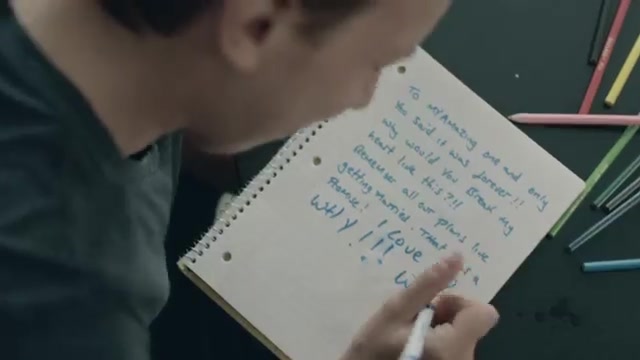 To my Amazing one and only
You said it was forever!!
why would you Break my
heart like this?!!
Remember all our plans like
getting married. That was a
Promise! I Love
WHY!!!